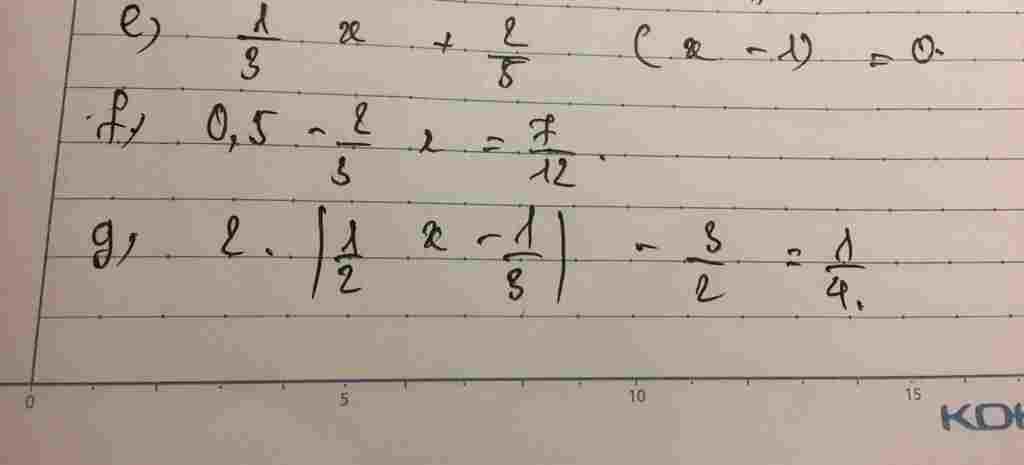 e) 1/3 x + 2/5 (x - 1) = 0.
f, 0,5 - 2/3 x = 7/12.
g, 2. |1/2 x - 1/3| - 3/2 = 1/4.
0 5 10 15